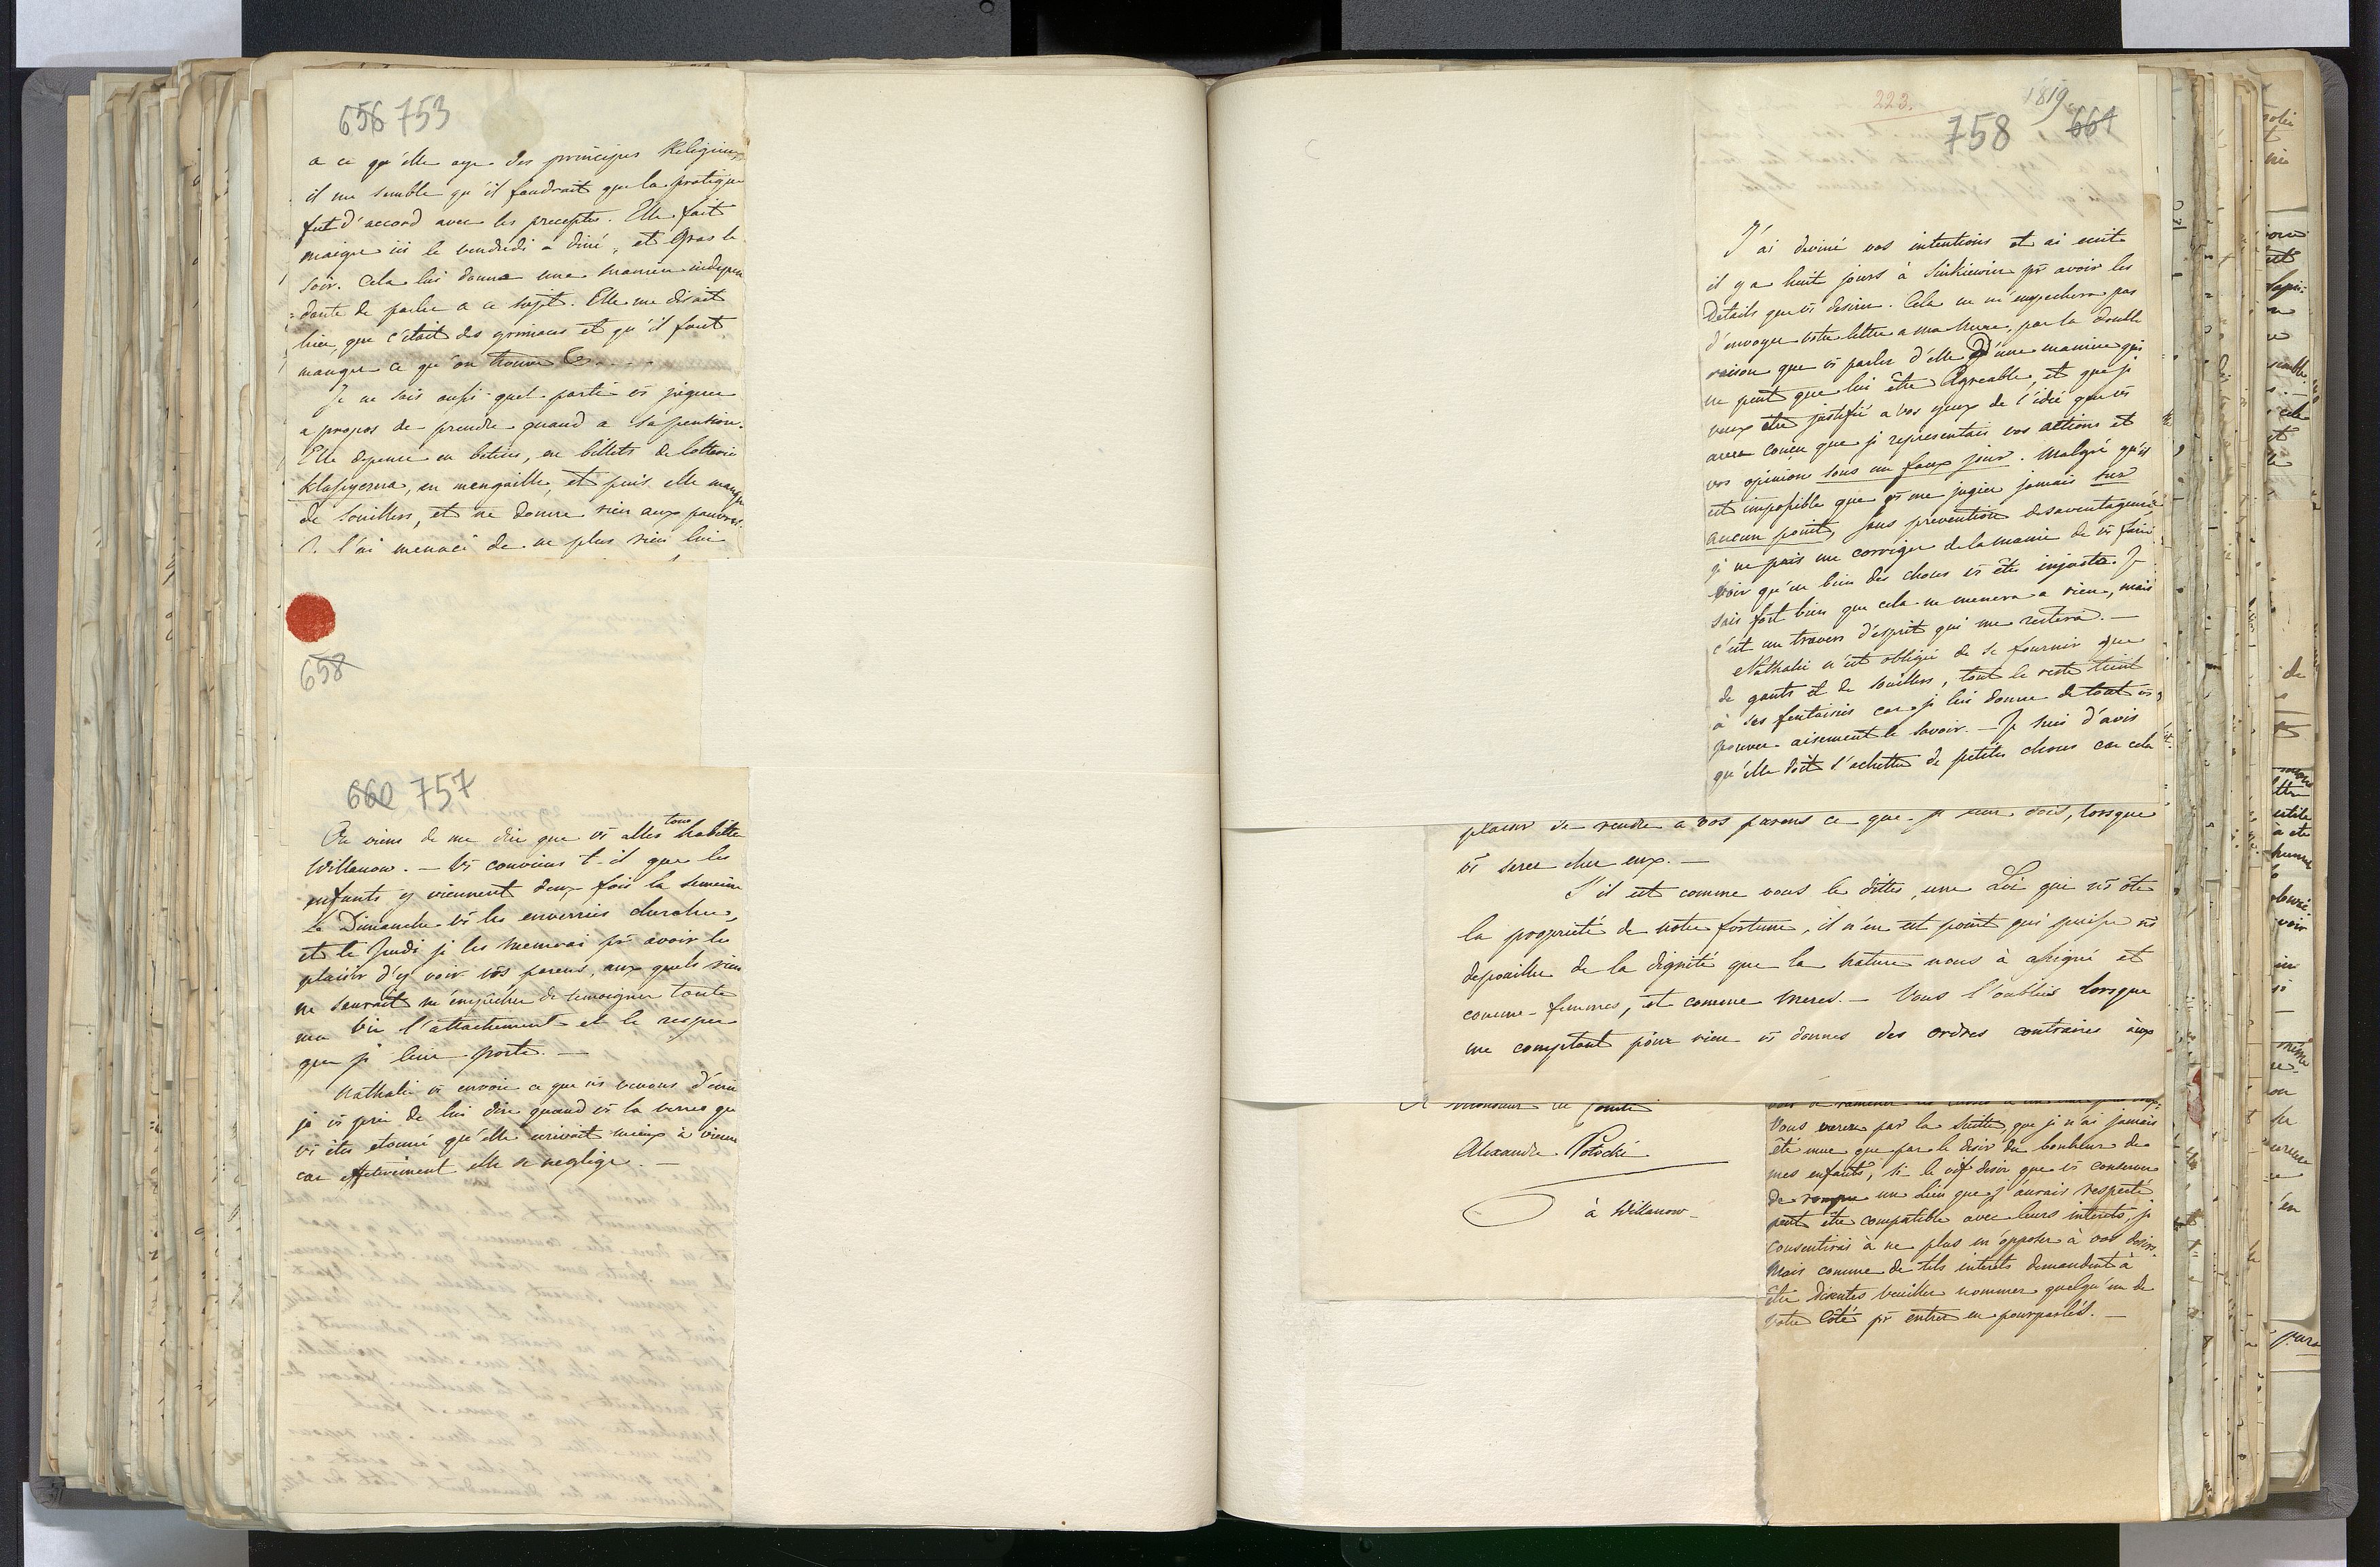 656 753
a ce qu'elle aye des principes Religieux
il me semble qu'il faudrait que la pratique
fut d'accord avec les preceptes. Elle fait
maigre ici le vendredi a diné, et Gras le
soir. Cela lui donne une maniere indepen
=dante de parler a ce sujet. Elle me disait
hier, que c'était des grimaces et qu'il faut
manger ce qu'on trouve &....
Je ne sais aussi quel parti vs jugerez
a propos de prendre quand a sa pention.
Elle depense en betises, en billets de lotterie
klassyczna, en mangaille, et puis elle manque
de souillers, et ne donne rien aux pauvres.
Je l'ai menacé de ne plus rien lui
658
660 757
On viens de me dire que vs alles tous habiter
Willanow. — Vs convient t-il que les
enfants y viennent deux fois la semaine
Le Dimanche vs les enverriés chercher,
et le Jeudi je les menerai pr avoir le
plaisir d'y voir vos parens, aux quels rien
ne saurait m'empêcher de temoigner toute
ma vie l'attachement et le respec
que je leur porte. —
Nathalie vs envoie ce que vs venons d'
je vs prie de lui dire quand vs la verres que
vs êtes etonné qu'elle écrivoit mieux à
car effectivement elle se neglige. —
223.
1819
758 661
J'ai deviné vos intentions et ai ecrit
il y a huit jours à Sinkiewicz pr avoir les
Details que vs desirez. Cela ne m'empechera pas
d'envoyer votre lettre a ma Mere, par la double
raison que vs parlez d'elle d'une maniere qui
ne peut que lui être Agreable, et que je
veux être justifié a vos yeux de l'idée que vs
avez conçu que je representais vos actions et
vos opinion sous un faux jour. Malgré qu'il
est impossible que vs me jugiez jamais sur
aucun point, sans prevention desaventageuse
je ne puis me corriger de la manie de vs faire
voir qu'en bien des choses vs êtes injuste. Je
sais fort bien que cela ne menera a rien, mais
c'est un travers d'esprit qui me restera. —
Nathalie n'est obligée de se fournir que
de gants et de souillers, tout le reste tient
à ses fentaisies car je lui donne de tout vs
pouvez aisement le savoir. — Je suis d'avis
qu'elle doit s'achetter de petites choses car cela
plaisir de rendre a vos parens ce que je leur dois, lorsque
vs serez chez eux. —
S'il est comme vous le dittes, une Loi qui ns ôte
la propriété de notre fortune, il n'en est point qui puisse ns
depouiller de la dignité que la Nature nous à assigné et
comme femmes, et comme Meres. — Vous l'oubliés lorsque
me comptant pour rien vs donnes des ordres contraires aux
A Monsieur le Comte
Alexandre Potocki
à Willanow
Vous verrez par la suitte que je n'ai jamais
été mue que par le desir du bonheur de
mes enfants, si le vif desir que vs
de rompre un Lien que j'aurais respecté
peut être compatible avec leurs interets, je
consentirais à ne plus m'opposer à vos desirs.
Mais comme de tels interets demandent à
être discutés veuillez nommer quelqu'un de
votre Côté pr entrer en pourparlés. —